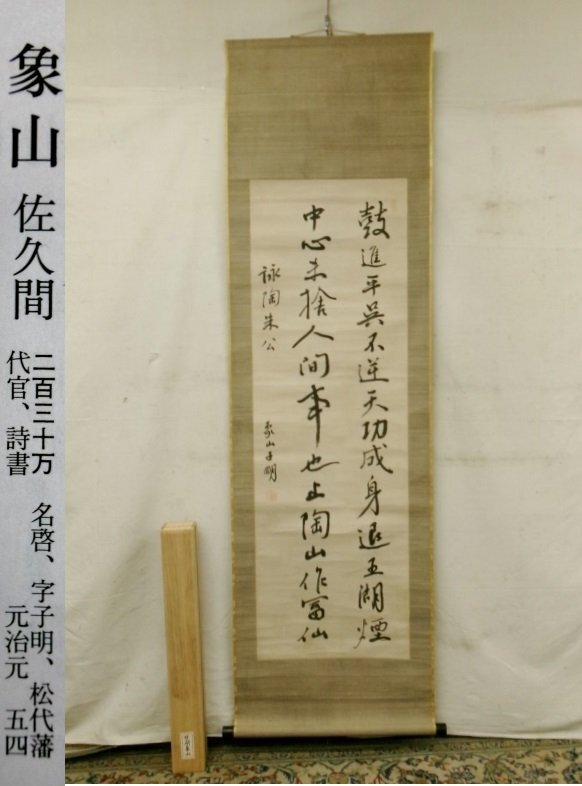 象山 佐久間
二百三十万 名啓、字子明、松代藩
代官、詩書 元治元 五四
鼓進平呉不逆天功成身退五湖煙
中心未捨人間事也上陶山作冨仙
詠陶朱公
象山子明